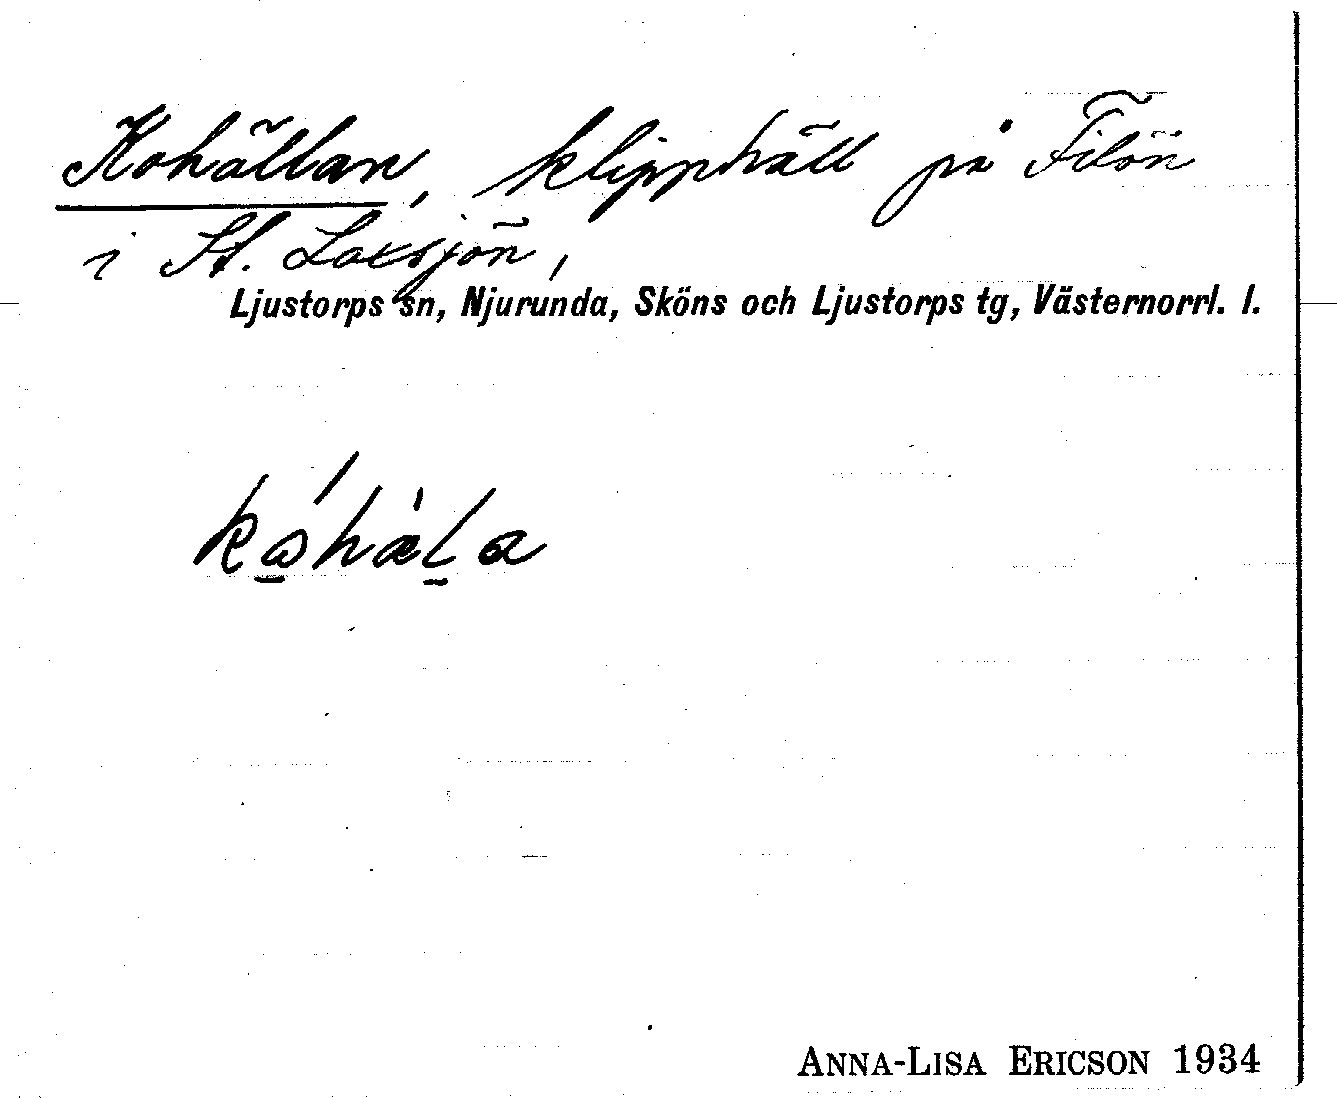 Kohällan, klipphäll på Filön
i St. Laxsjön,
Ljustorps sn, Njurunda, Sköns och Ljustorps tg, Västernorrl. l.
ANNA-LISA ERICSON 1934